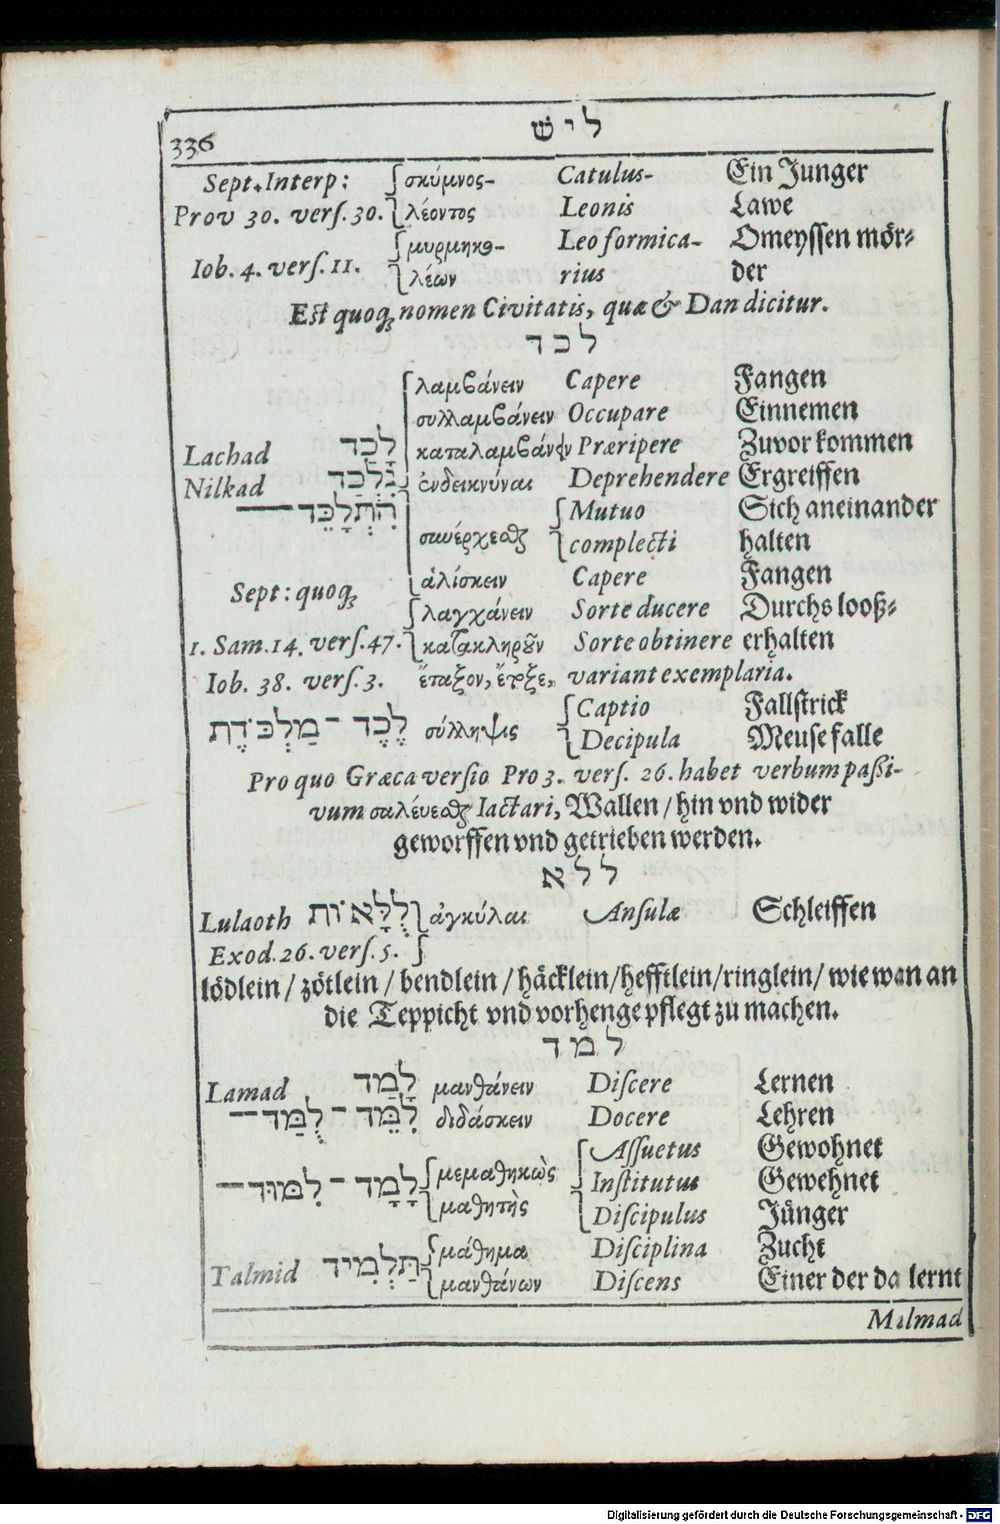 336 ליש
Sept. Interp: σκύμνος- Catulus- Ein Junger
Prov 30. verſ. 30. λέοντος Leonis Lawe
μυρμηκο- Leo formica- Omeyſſen mör-
Iob. 4. verſ. 11. λέων rius der
Est quoq; nomen Civitatis, quæ & Dan dicitur.
לכד
λαμβάνειν Capere Fangen
συλλαμβάνειν Occupare Einnemen
Lachad לָכַד καταλαμβάνειν Præripere Zuvor kommen
Nilkad נִלְכַּד ἐνδεικνύναι Deprehendere Ergreiffen
הִתְלַכֵּד Mutuo Sich aneinander
συνέρχεσθαι complecti halten
ἁλίσκειν Capere Fangen
Sept: quoq; λαγχάνειν Sorte ducere Durchs looß-
1. Sam. 14. verſ. 47. κατακληροῦν Sorte obtinere erhalten
Iob. 38. verſ. 3. ἔταξον, variant exemplaria.
לֶכֶד - מַלְכֹּדֶת σύλληψις Captio Fallſtrick
Decipula Meuſefalle
Pro quo Græca verſio Pro 3. verſ. 26. habet verbum paßi-
vum σαλέυεσθαι Iactari, Wallen / hin vnd wider
geworffen vnd getrieben werden.
ללא
Lulaoth לֻלָּאוֹת ἀγκύλαι Anſulæ Schleiffen
Exod. 26. verſ. 5.
lödlein / zötlein / bendlein / häcklein / hefftlein / ringlein / wie man an
die Teppicht vnd vorhenge pflegt zu machen.
למד
Lamad לָמַד μανθάνειν Diſcere Lernen
לִמֵּד - לֻמַּד διδάσκειν Docere Lehren
Aſſuetus Gewohnet
לָמָד - לִמּוּד μεμαθηκὼς Inſtitutus Gewehnet
μαθητὴς Diſcipulus Jünger
μάθημα Diſciplina Zucht
Talmid תַּלְמִיד μανθάνων Diſcens Einer der da lernt
Milmad
Digitalisierung gefördert durch die Deutsche Forschungsgemeinschaft - DFG